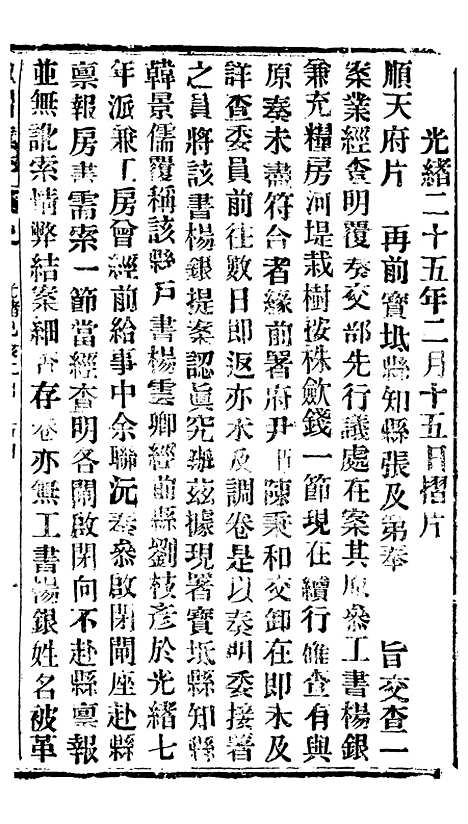 光緒二十五年二月十五日摺片
順天府片 再前寶坻縣知縣張及第奉 旨交查一
案業經查明覆奏交部先行議處在案其原參工書楊銀
兼充糧房河堤栽樹按株歛錢一節現在續行催查有與
原奏未盡符合者緣前署府尹臣陳秉和交卸在即未及
詳查委員前往數日即返亦未及調卷是以奏明委接署
之員將該書楊銀提案認眞究辦茲據現署寶坻縣知縣
韓景儒覆稱該縣戶書楊雲卿經前縣劉枝彥於光緒七
年派兼工房曾經前給事中余聯沅奏參啟閉閘座赴縣
禀報房書需索一節當經查明各閘啟閉向不赴縣禀報
並無訛索情弊結案細查存卷亦無工書楊銀姓名被革